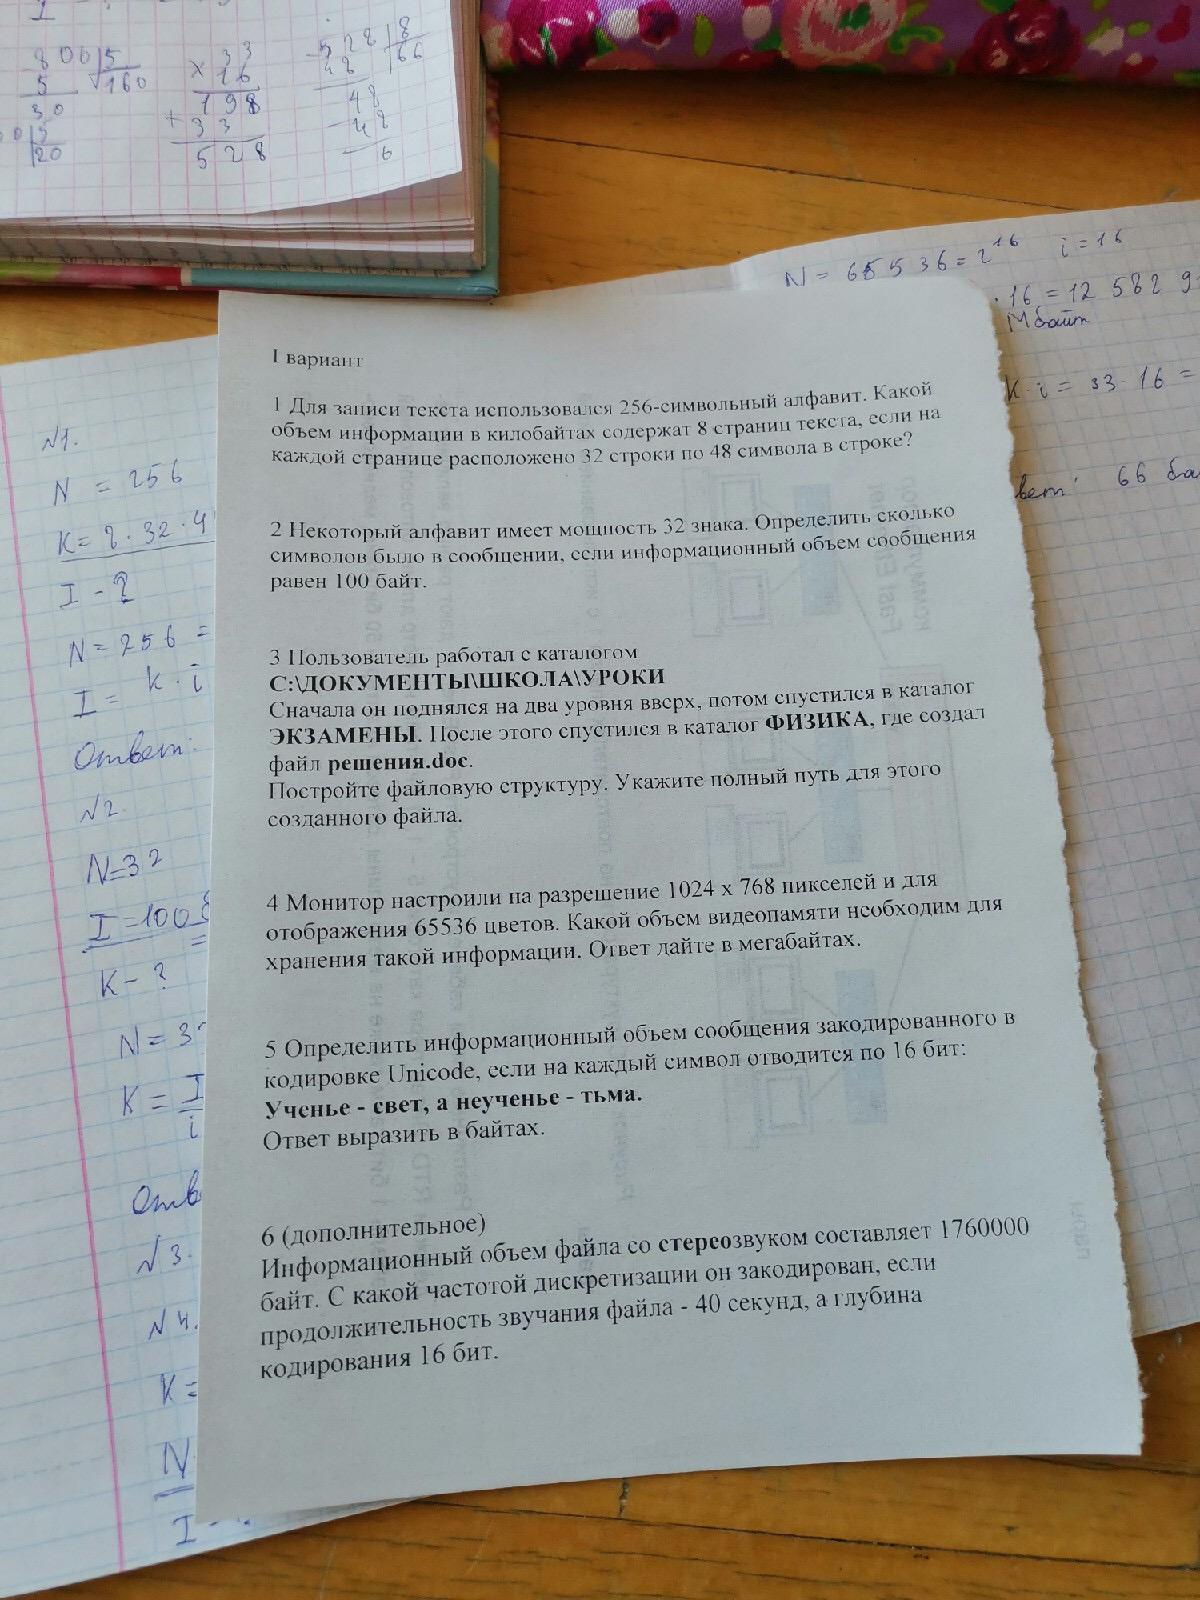 800 5
5 160
30
20
33
× 16
198
+ 33
528
528 8
48 66
48
- 48
6
N = 65536 = 2¹⁶ i = 16
· 16 = 12 582 9
Мбайт
K · i = 33 · 16 =
66
I вариант
1 Для записи текста использовался 256-символьный алфавит. Какой
объем информации в килобайтах содержат 8 страниц текста, если на
каждой странице расположено 32 строки по 48 символа в строке?
2 Некоторый алфавит имеет мощность 32 знака. Определить сколько
символов было в сообщении, если информационный объем сообщения
равен 100 байт.
3 Пользователь работал с каталогом
С:\ДОКУМЕНТЫ\ШКОЛА\УРОКИ
Сначала он поднялся на два уровня вверх, потом спустился в каталог
ЭКЗАМЕНЫ. После этого спустился в каталог ФИЗИКА, где создал
файл решения.doc.
Постройте файловую структуру. Укажите полный путь для этого
созданного файла.
4 Монитор настроили на разрешение 1024 х 768 пикселей и для
отображения 65536 цветов. Какой объем видеопамяти необходим для
хранения такой информации. Ответ дайте в мегабайтах.
5 Определить информационный объем сообщения закодированного в
кодировке Unicode, если на каждый символ отводится по 16 бит:
Ученье - свет, а неученье - тьма.
Ответ выразить в байтах.
6 (дополнительное)
Информационный объем файла со стереозвуком составляет 1760000
байт. С какой частотой дискретизации он закодирован, если
продолжительность звучания файла - 40 секунд, а глубина
кодирования 16 бит.
№1.
N = 256
K = 8 · 32 · 4
I - ?
N = 256 =
I = k · i
Ответ:
№2.
N=32
I=100
K - ?
N = 3
K = I
i
Отв
№3.
№4.
K =
N
I -